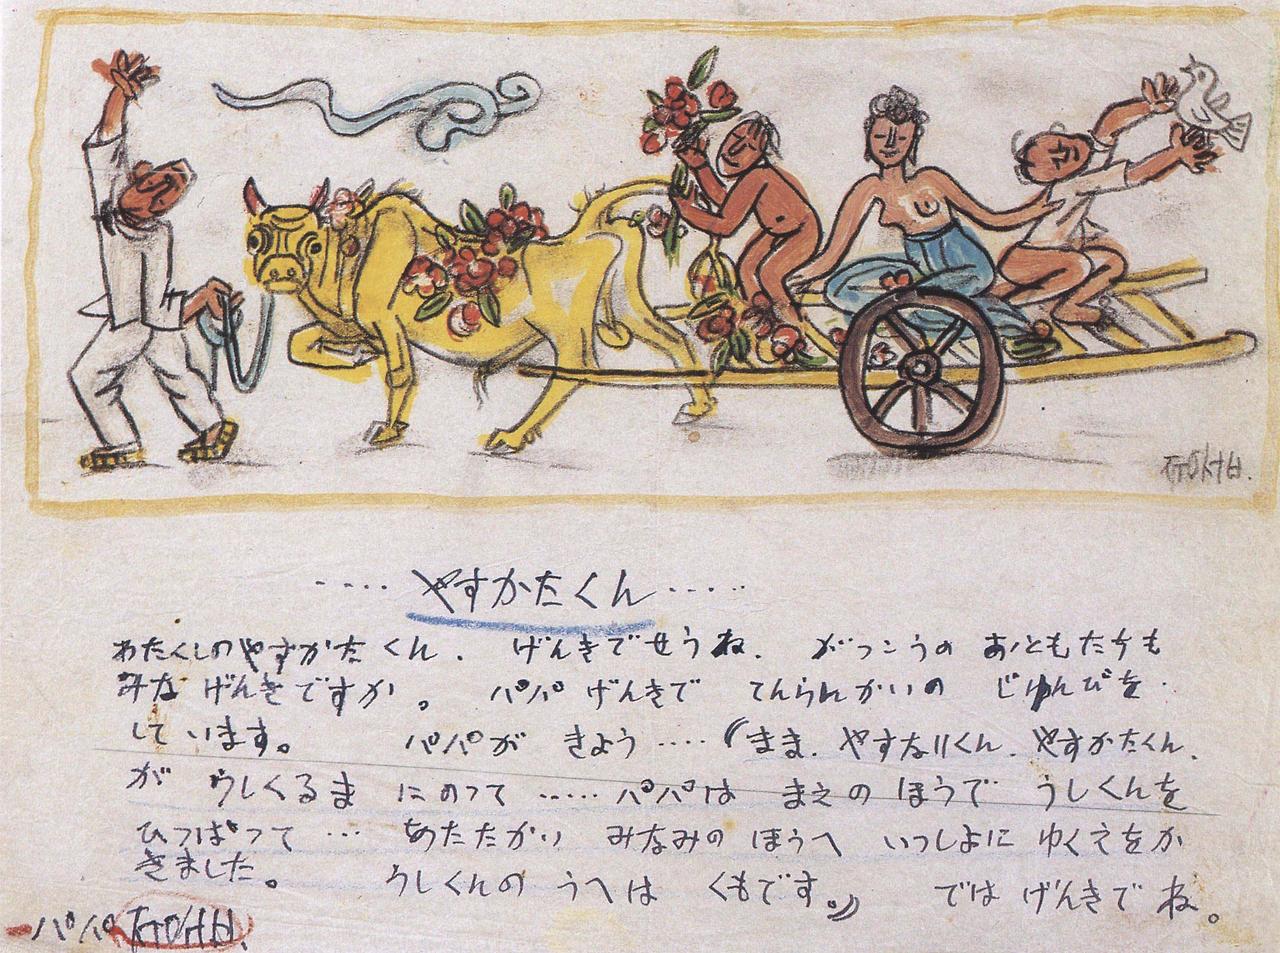 ㅈㅜㅇㅅㅓㅂ.
‥‥やすかたくん‥‥‥
わたくしのやすかたくん. げんきでせうね. がっこうの おともたちも
みな げんきですか。 パパ げんきで てんらんかいの じゅんびを.
しています。 パパが きよう‥‥(まま. やすなりくん. やすかたくん.
が うしくるま にのって ‥‥‥パパは まえの ほうで うしくんを
ひっぱって … あたたかい みなみの ほうへ いっしよに ゆくえをか
きました。 うしくんの うへは くもです。) では げんきで ね。
ーパパ ㅈㅜㅇㅅㅓㅂ.